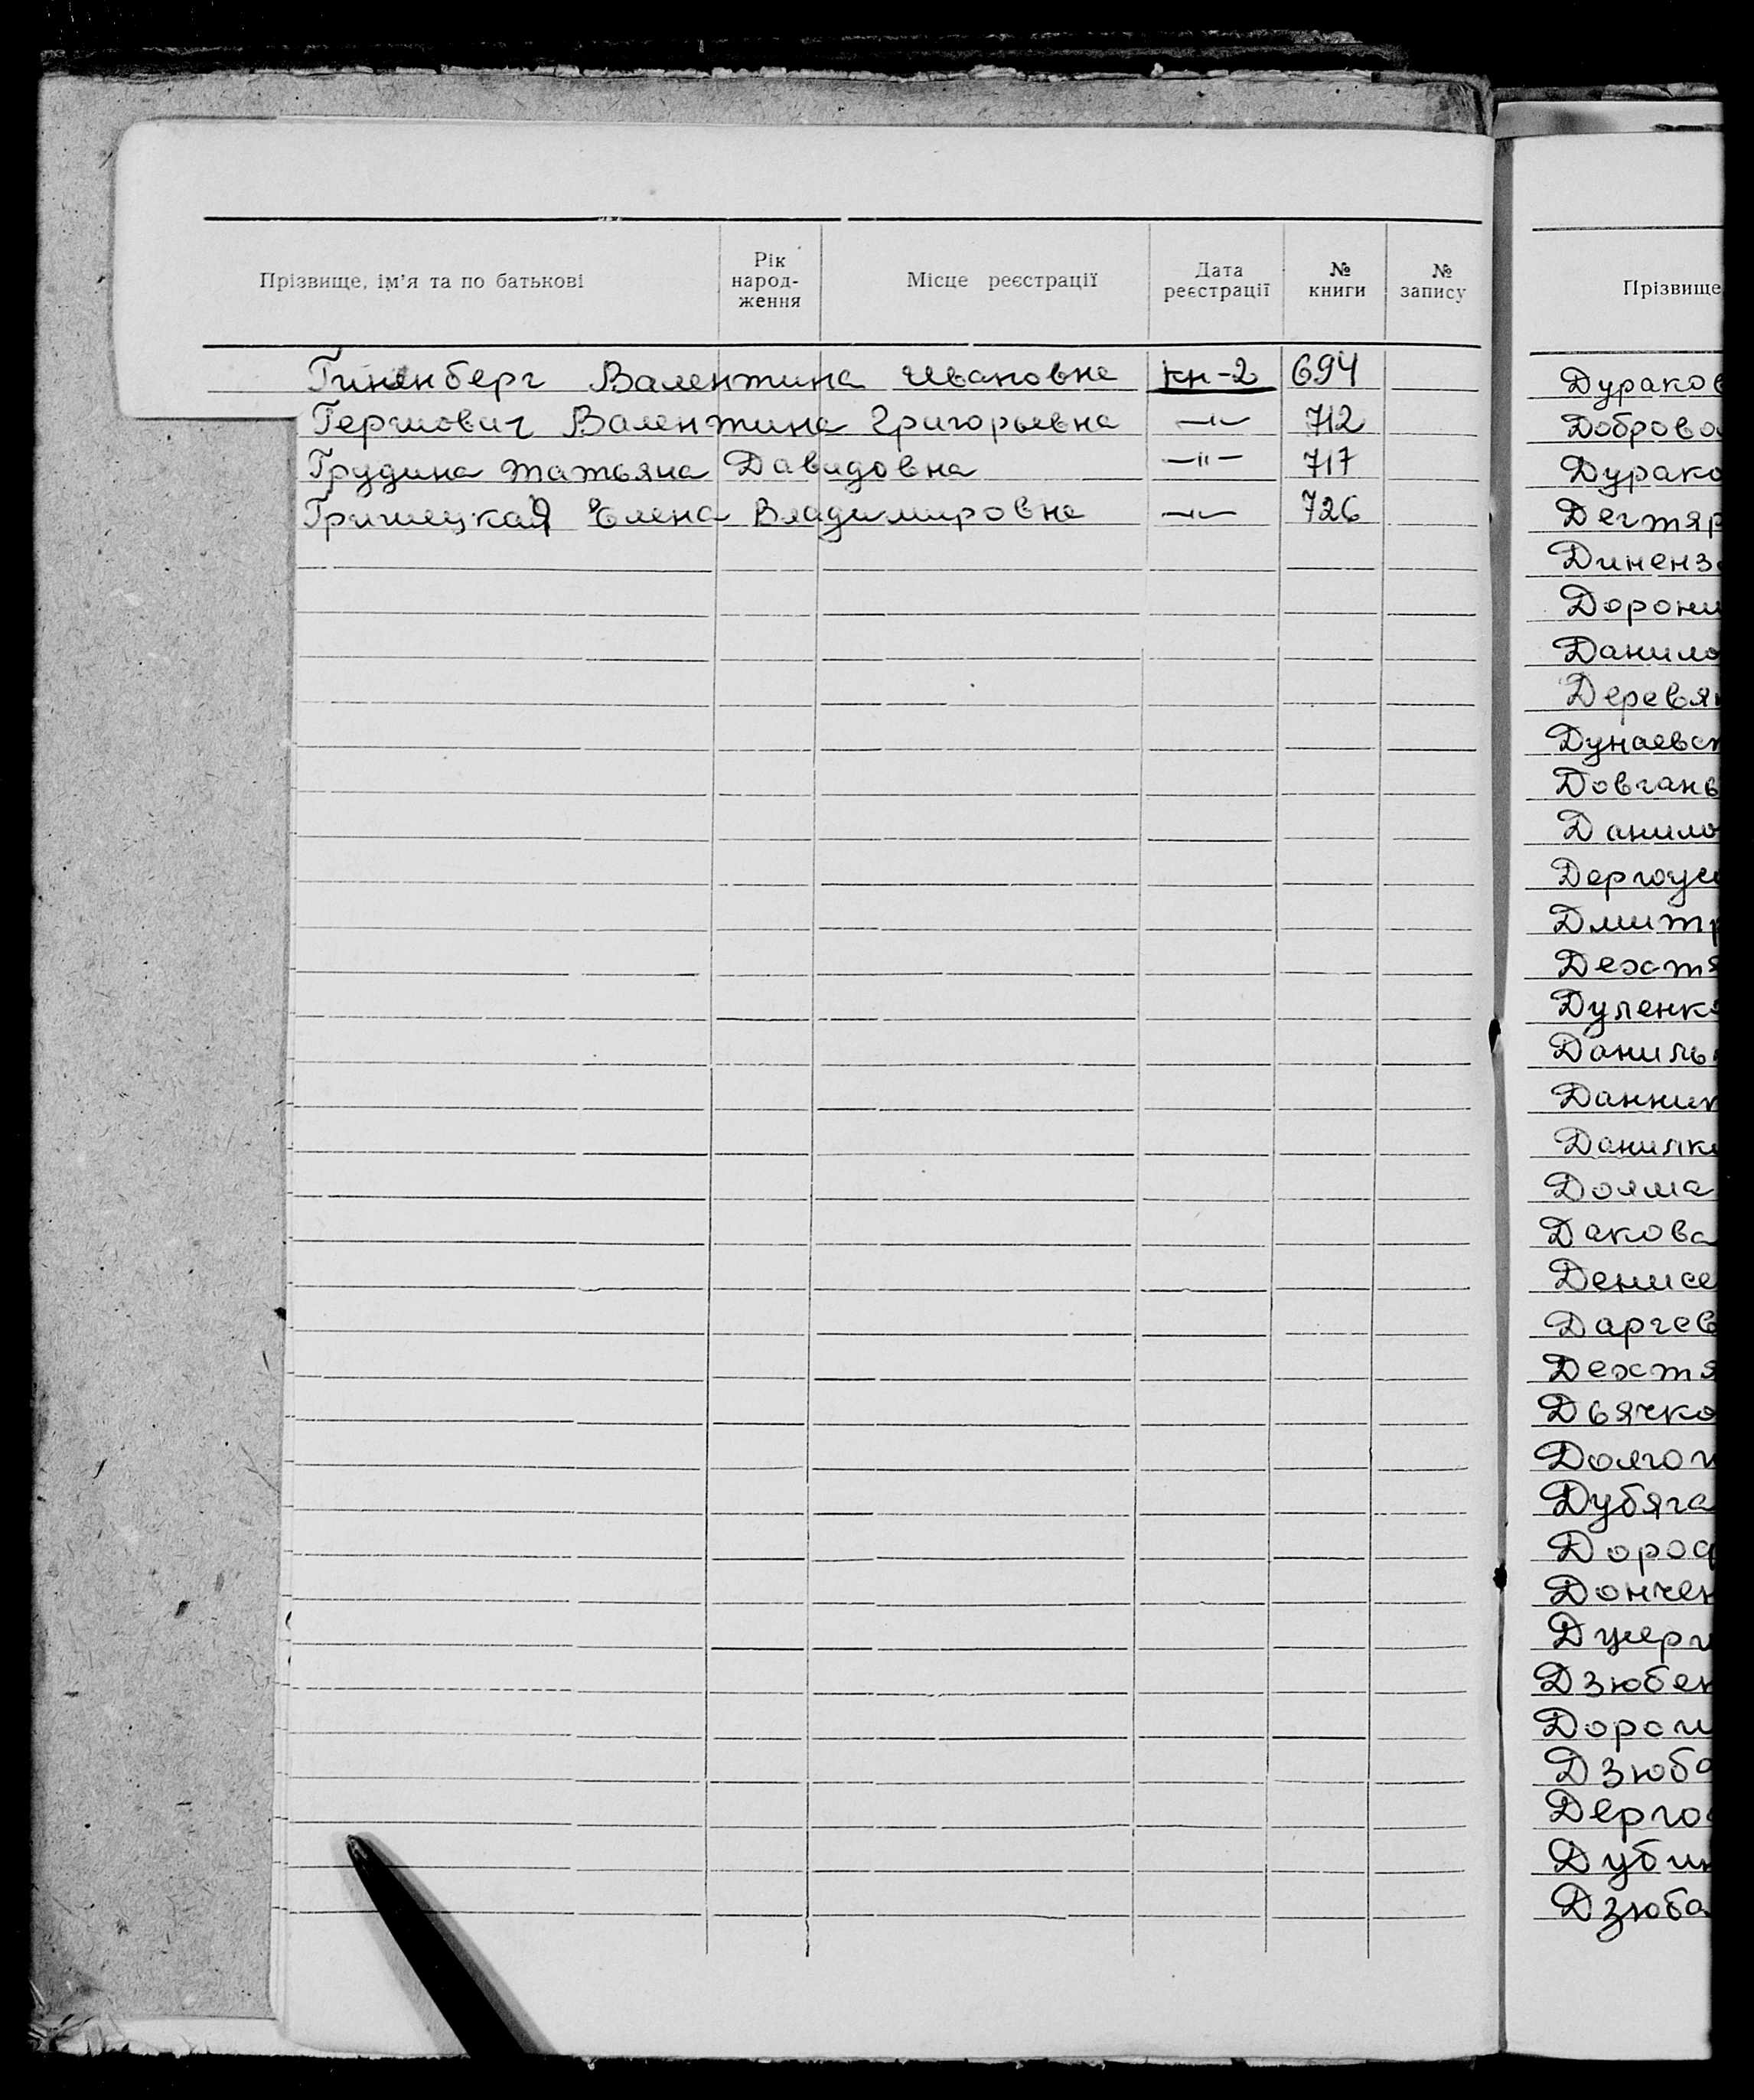 Прізвище, ім'я та по батькові
Рік народ-ження
Місце реєстрації
Дата реєстрації
№ книги
№ запису
Гиненберг Валентина Ивановна кн-2 694
Гершович Валентина Григорьевна —"— 712
Грудина Татьяна Давидовна —"— 717
Гришецкая Елена Владимировна —"— 726
Прізвище
Дураков
Доброво
Дурако
Дегтяр
Диненз
Дорони
Данило
Деревян
Дунаевск
Довгань
Данило
Дергоус
Дмитр
Дехтя
Дуленко
Даниль
Данник
Данилки
Долма
Дакова
Денисе
Даргев
Дехтя
Дьячко
Долгоп
Дубяга
Дороф
Дончен
Дзюбен
Дорош
Дзюба
Дерго
Дубин
Дзюба